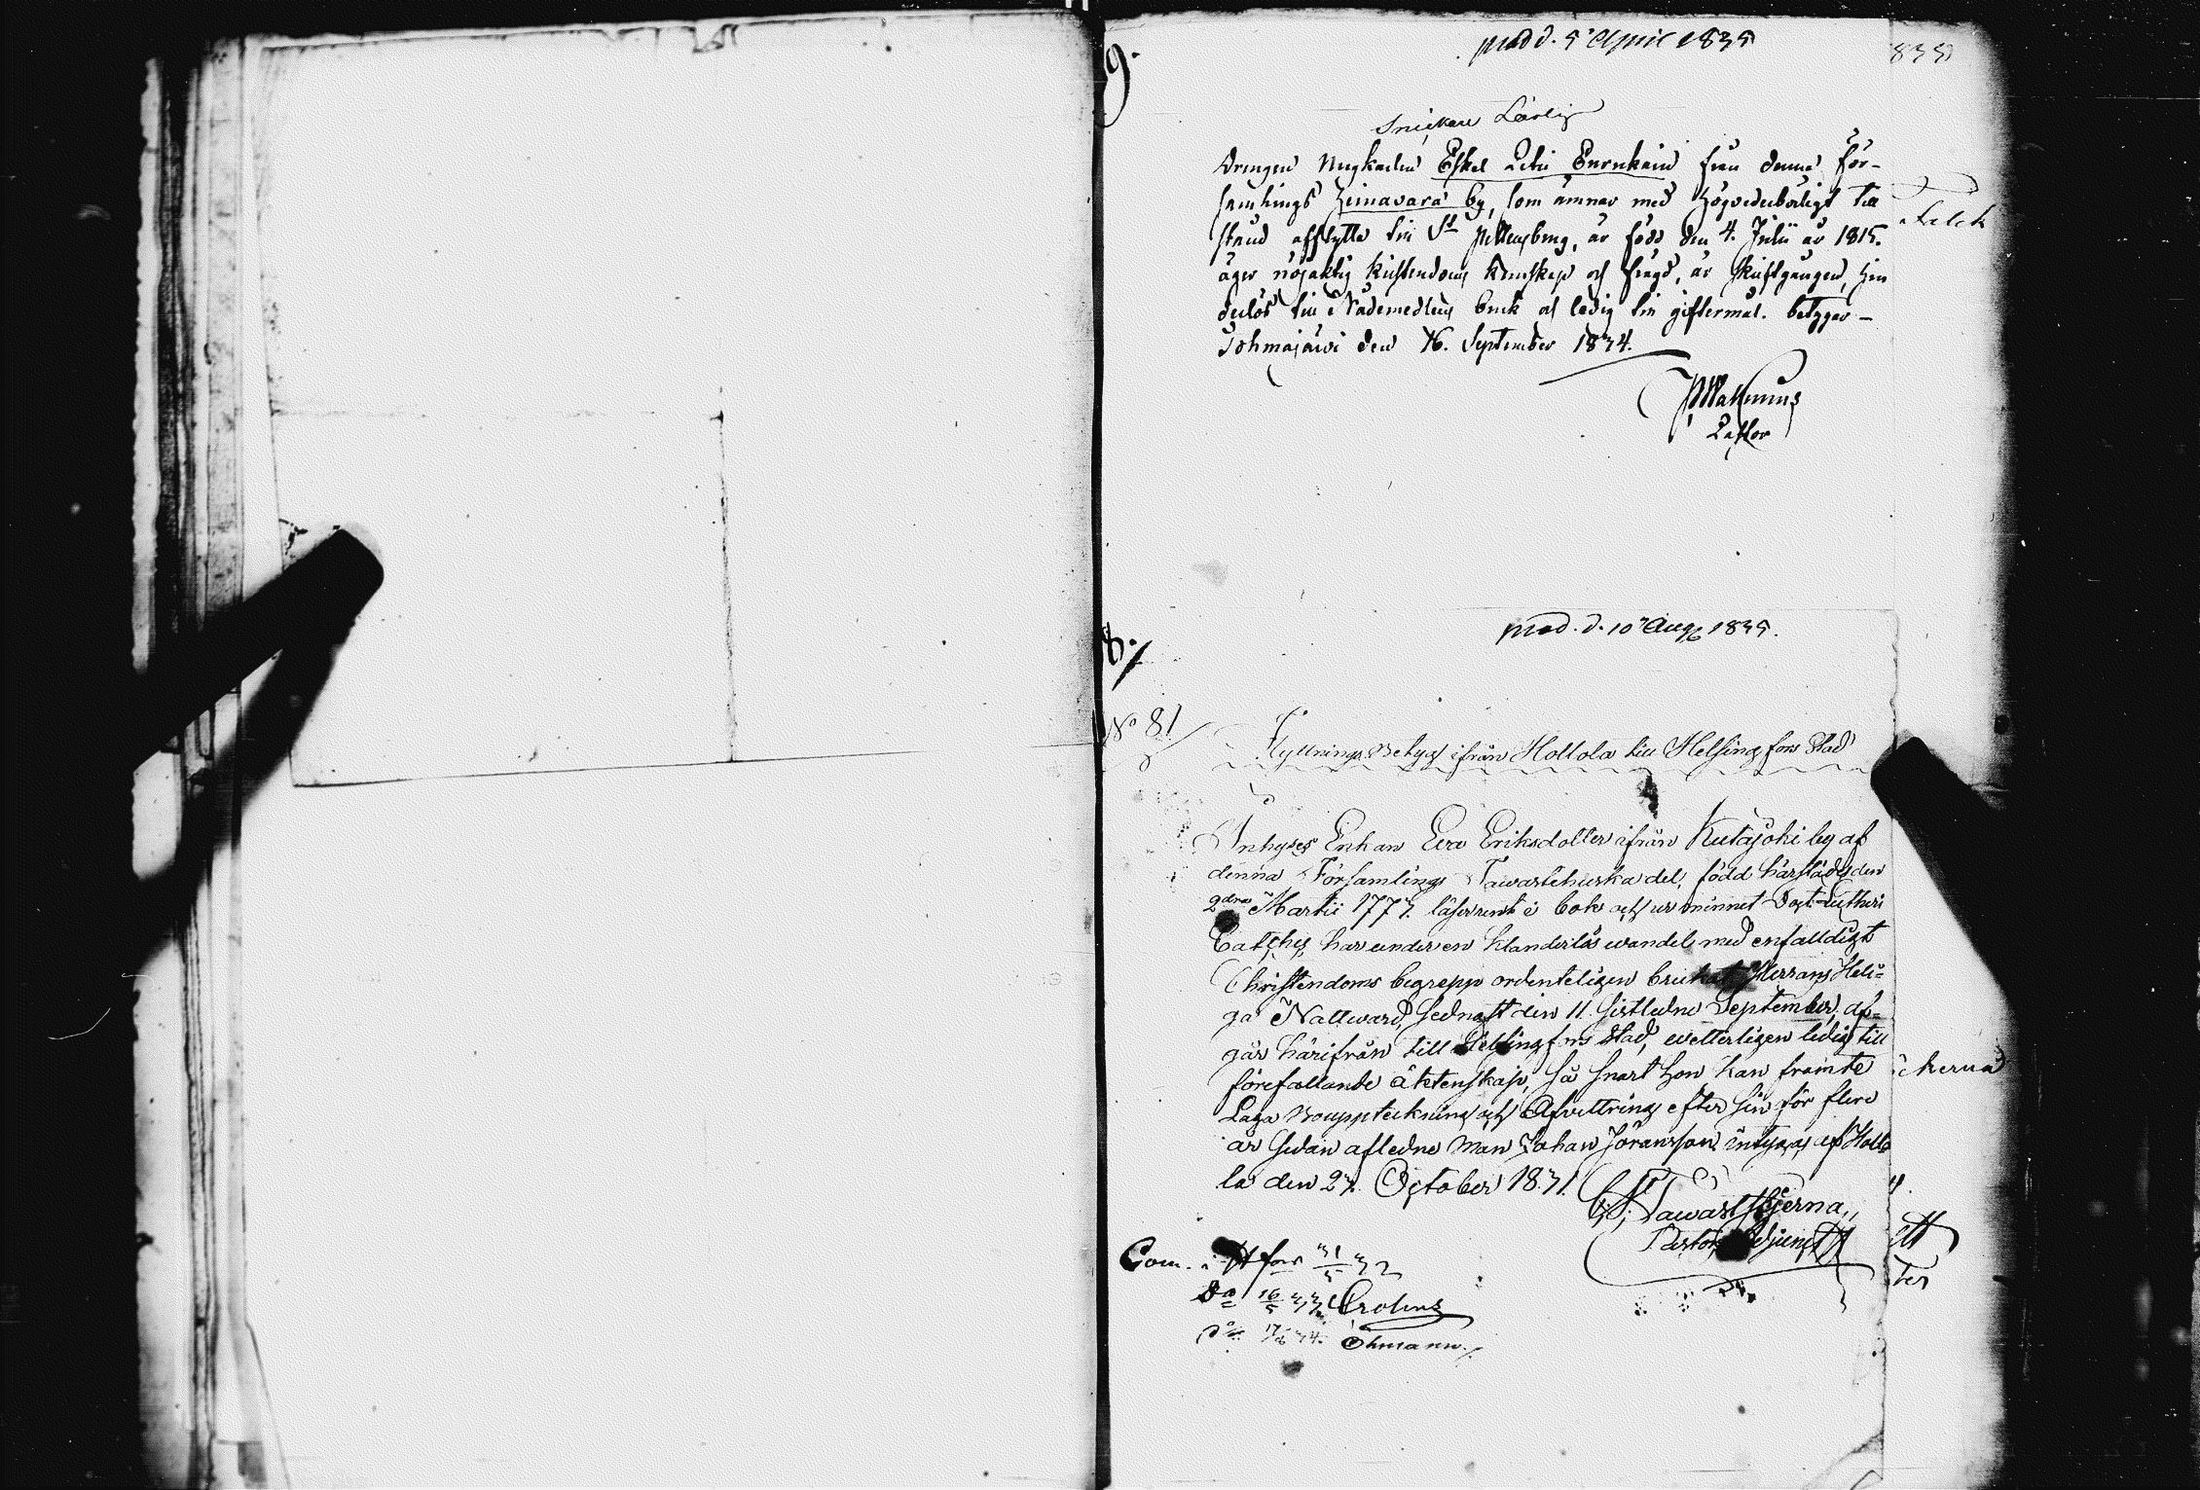 prod d. 5 April 1835
835
9.
Snickare Lärling
Drengen Ungkarlen Eskel Petri Eurnkain från denna För-
samlings Heinavara by, som ämnar med högvederbörligt till
stånd afflytta till St Pettersburg, är född den 4. Julii år 1815.
äger nöjaktig Kristendoms kunskap och frägd, är Skriftgången, hin
derlös till Nådemedlens bruk och ledig till giftermål. betygar –
Tohmajärvi den 16. September 1834.
Pastor
prod. d. 10 Aug 1835.
8./
No 81
Flyttnings Betyg ifrån Hollola till Helsingfors Stad
Inhyses Enkan Eva Eriksdotter ifrån Kutajoki by af
denna Församlings Tawastehuska del, född härstädes den
2dra Martii 1777. läser rent i bok och ur minnet Doct. Lutheri
Catches, har under en klanderlös wandel med enfalldigt
Christendoms begrepp ordenteligen brukat Herrans Heli=
ga Nattward, sednast den 11 sistledne September, af=
går härifrån till Helsingfors Stad, wetterligen ledig till
förefallande äktenskap, så snart hon kan framte
Laga Bouppteckning och Afvittring efter sin för flere
år sedan afledne man Johan Jöransson. intygas af Hollo
la den 27. October 1831.
Tawaststjerna,,
Pastors Adjunct
Com. i H:fors 31/5 32
Do 16/5 33 Crolins
do 17/6 34. Öhmann./.